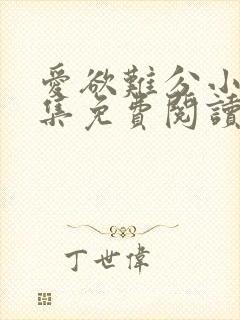 愛欲難分小
集免費閱讀
丁世偉